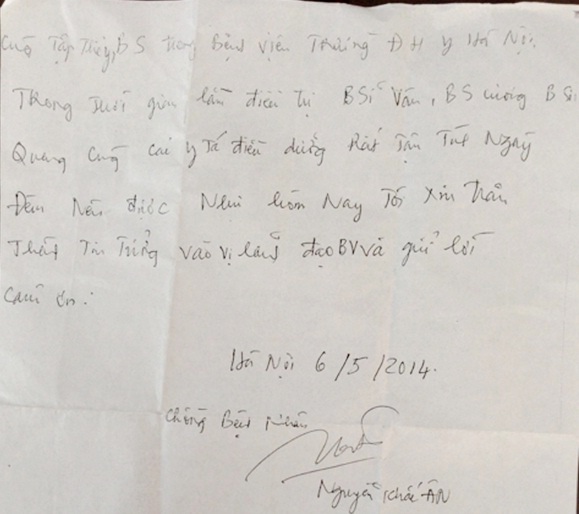 Cuộ Tập Thể, BS trong Bệnh viện Trường ĐH y Hà Nội.
Trong suốt gian lần điều trị BSĩ Vân, BS cương BSĩ
Quang cùng cái y Tá điều dưỡng Rất Tận Tuỵ Ngày
Đêm Nên được Như hôm Nay Tôi Xin trân
Thành Tin Tưởng vào vị lãnh đạo BV và gửi lời
cảm ơn.
Hà Nội 6/5/2014.
Chồng Bệnh Nhân
Nguyễn Khắc ÂN